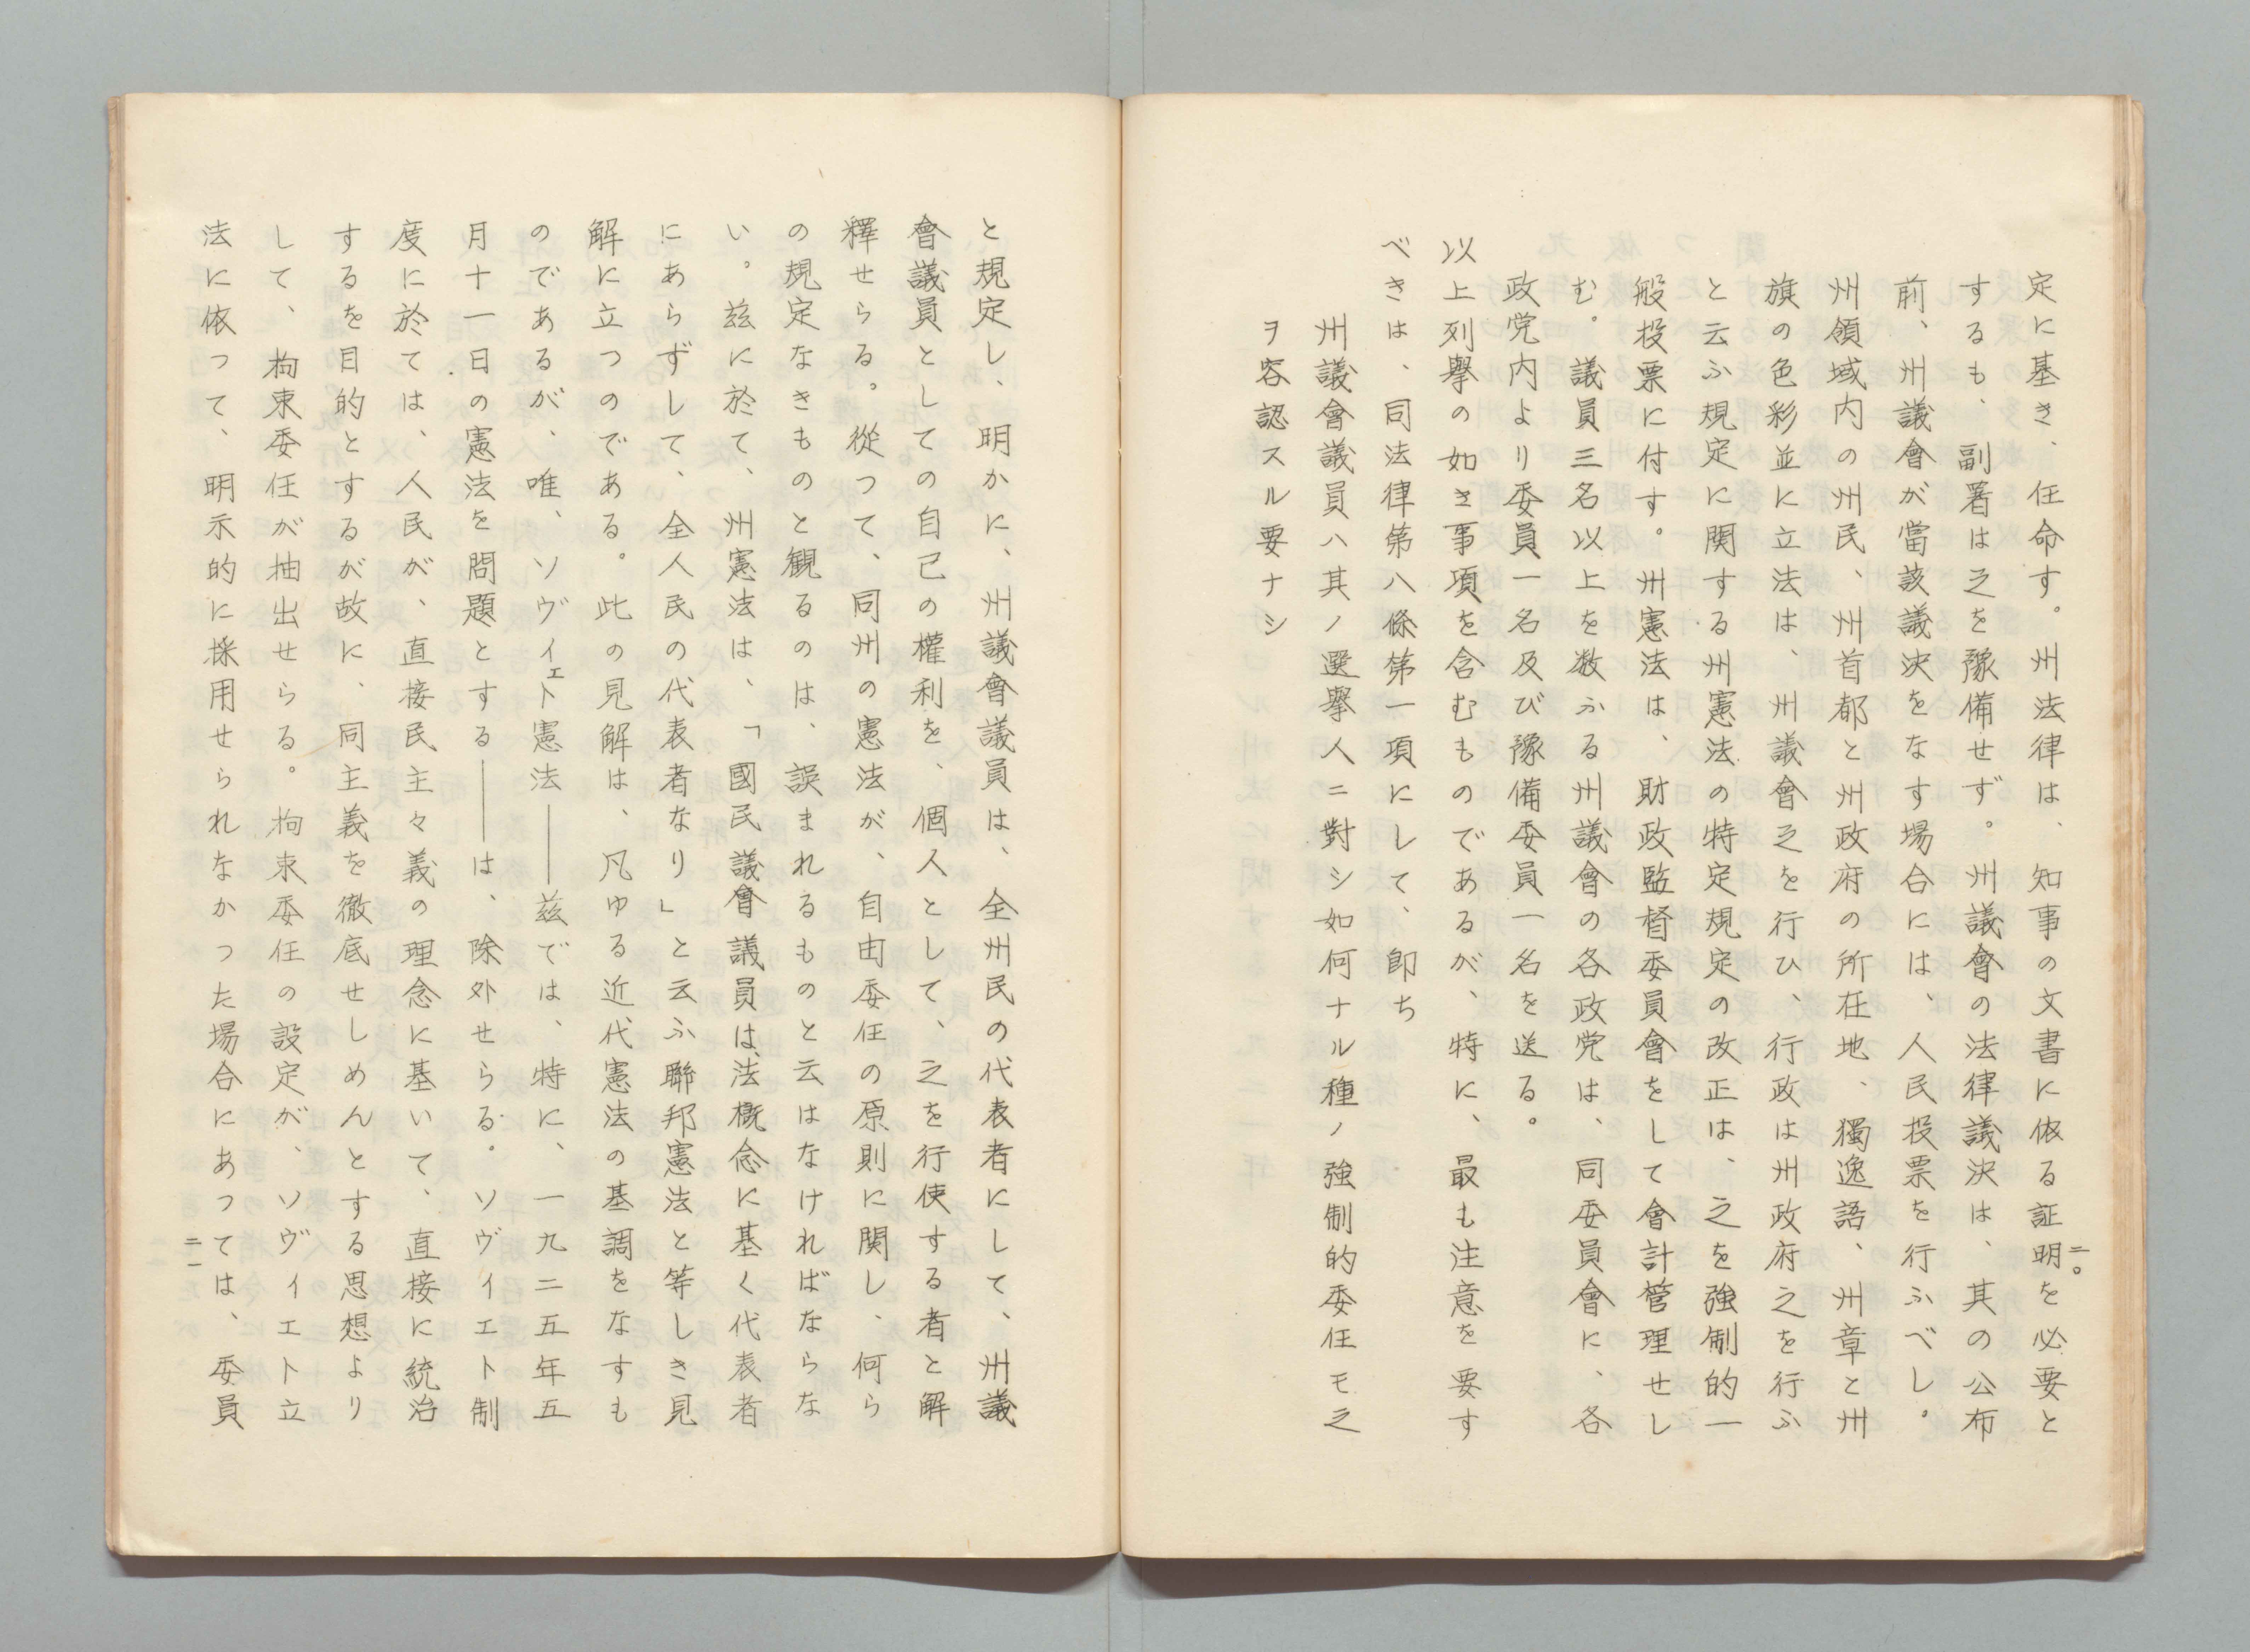 定に基き、任命す。州法律は、知事の文書に依る証明を必要と
するも、副署は之を豫備せず。州議會の法律議決は、其の公布
前、州議會が當該議決をなす場合には、人民投票を行ふべし。
州領域内の州民、州首都と州政府の所在地、獨逸語、州章と州
旗の色彩並に立法は、州議會之を行ひ、行政は州政府之を行ふ
と云ふ規定に関する州憲法の特定規定の改正は、之を強制的一
般投票に付す。州憲法は、財政監督委員會をして會計管理せし
む。議員三名以上を数ふる州議會の各政党は、同委員會に、各
政党内より委員一名及び豫備委員一名を送る。
以上列擧の如き事項を含むものであるが、特に、最も注意を要す
べきは、同法律第八條第一項にして、卽ち
州議會議員ハ其ノ選擧人ニ對シ如何ナル種ノ強制的委任モ之
ヲ容認スル要ナシ
二〇
と規定し、明かに、州議會議員は、全州民の代表者にして、州議
會議員としての自己の權利を、個人として、之を行使する者と解
釋せらる。從つて、同州の憲法が、自由委任の原則に関し、何ら
の規定なきものと観るのは、誤まれるものと云はなければならな
い。茲に於て、州憲法は、「國民議會議員は、法概念に基く代表者
にあらずして、全人民の代表者なり」と云ふ聯邦憲法と等しき見
解に立つのである。此の見解は、凡ゆる近代憲法の基調をなすも
のであるが、唯、ソヴィエト憲法――茲では、特に、一九二五年五
月十一日の憲法を問題とする――は、除外せらる。ソヴィエト制
度に於ては、人民が、直接民主々義の理念に基いて、直接に統治
するを目的とするが故に、同主義を徹底せしめんとする思想より
して、拘束委任が抽出せらる。拘束委任の設定が、ソヴィエト立
法に依って、明示的に採用せられなかった場合にあっては、委員
二一